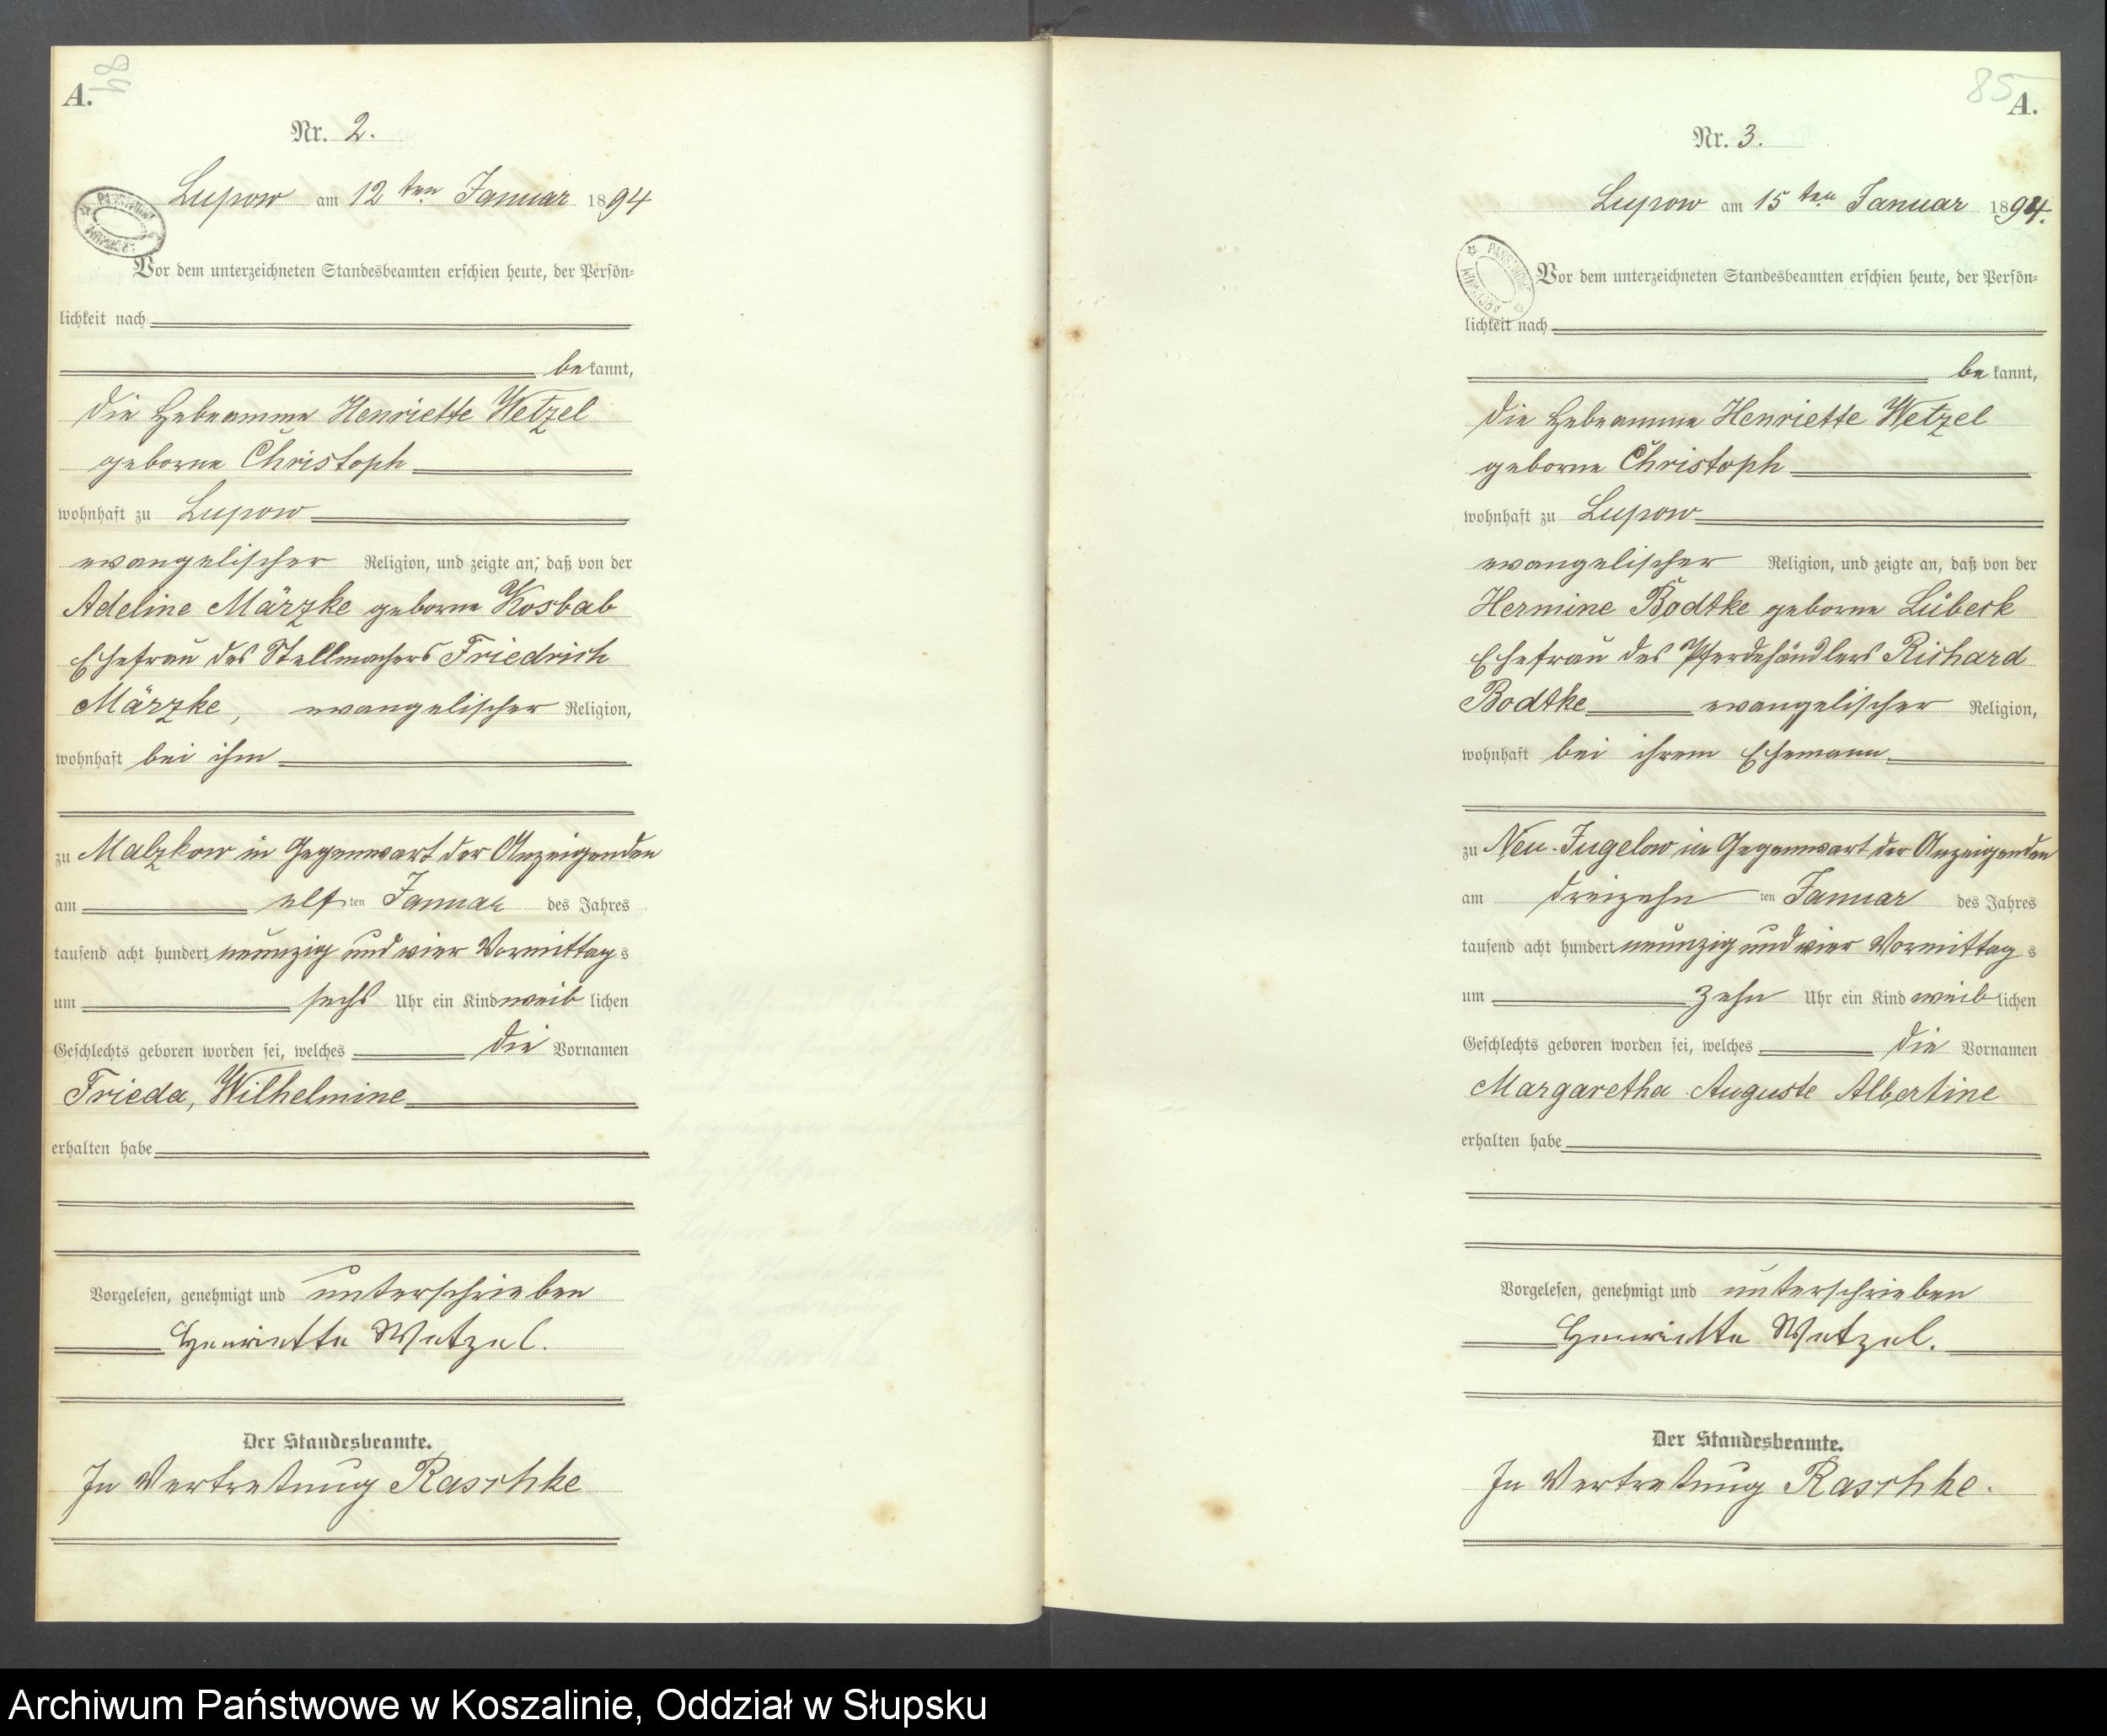 A.
84
Nr. 2.
Lupow am 12 ten Januar 1894
PAŃSTWOWE ARCHIWUM
Vor dem unterzeichneten Standesbeamten erschien heute, der Persön-
lichkeit nach
bekannt,
die Hebeamme Henriette Wetzel
geborne Christoph
wohnhaft zu Lupow
evangelischer Religion, und zeigte an, daß von der
Adeline Märzke geborne Kosbab
Ehefrau des Stellmachers Friedrich
Märzke, evangelischer Religion,
wohnhaft bei ihm
zu Malzkow in Gegenwart der Anzeigenden
am elften Januar des Jahres
tausend acht hundert neunzig und vier Vormittags
um sechs Uhr ein Kind weiblichen
Geschlechts geboren worden sei, welches die Vornamen
Frieda, Wilhelmine
erhalten habe
Vorgelesen, genehmigt und unterschrieben
Henriette Wetzel.
Der Standesbeamte.
In Vertretung Raschke
85
A.
Nr. 3.
Lupow am 15 ten Januar 1894.
PAŃSTWOWE ARCHIWUM
Vor dem unterzeichneten Standesbeamten erschien heute, der Persön-
lichkeit nach
bekannt,
die Hebeamme Henriette Wetzel
geborne Christoph
wohnhaft zu Lupow
evangelischer Religion, und zeigte an, daß von der
Hermine Bodtke geborne Lübeck
Ehefrau des Pferdehändlers Richard
Bodtke evangelischer Religion,
wohnhaft bei ihrem Ehemann
zu Neu-Jugelow in Gegenwart der Anzeigenden
am dreizehnten Januar des Jahres
tausend acht hundert neunzig und vier Vormittags
um zehn Uhr ein Kind weiblichen
Geschlechts geboren worden sei, welches die Vornamen
Margaretha Auguste Albertine
erhalten habe
Vorgelesen, genehmigt und unterschrieben
Henriette Wetzel.
Der Standesbeamte.
In Vertretung Raschke.
Archiwum Państwowe w Koszalinie, Oddział w Słupsku